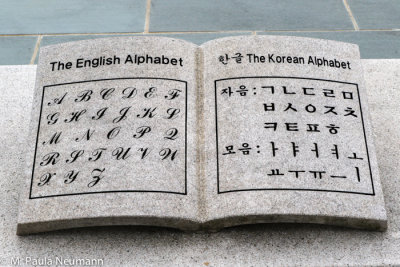 The English Alphabet
A B C D E F
G H I J K L
M N O P Q
R S T U V W
X Y Z
한글 The Korean Alphabet
자음: ㄱ ㄴ ㄷ ㄹ ㅁ
ㅂ ㅅ ㅇ ㅈ ㅊ
ㅋ ㅌ ㅍ ㅎ
모음: ㅏ ㅑ ㅓ ㅕ ㅗ
ㅛ ㅜ ㅠ ㅡ ㅣ
© M. Paula Neumann